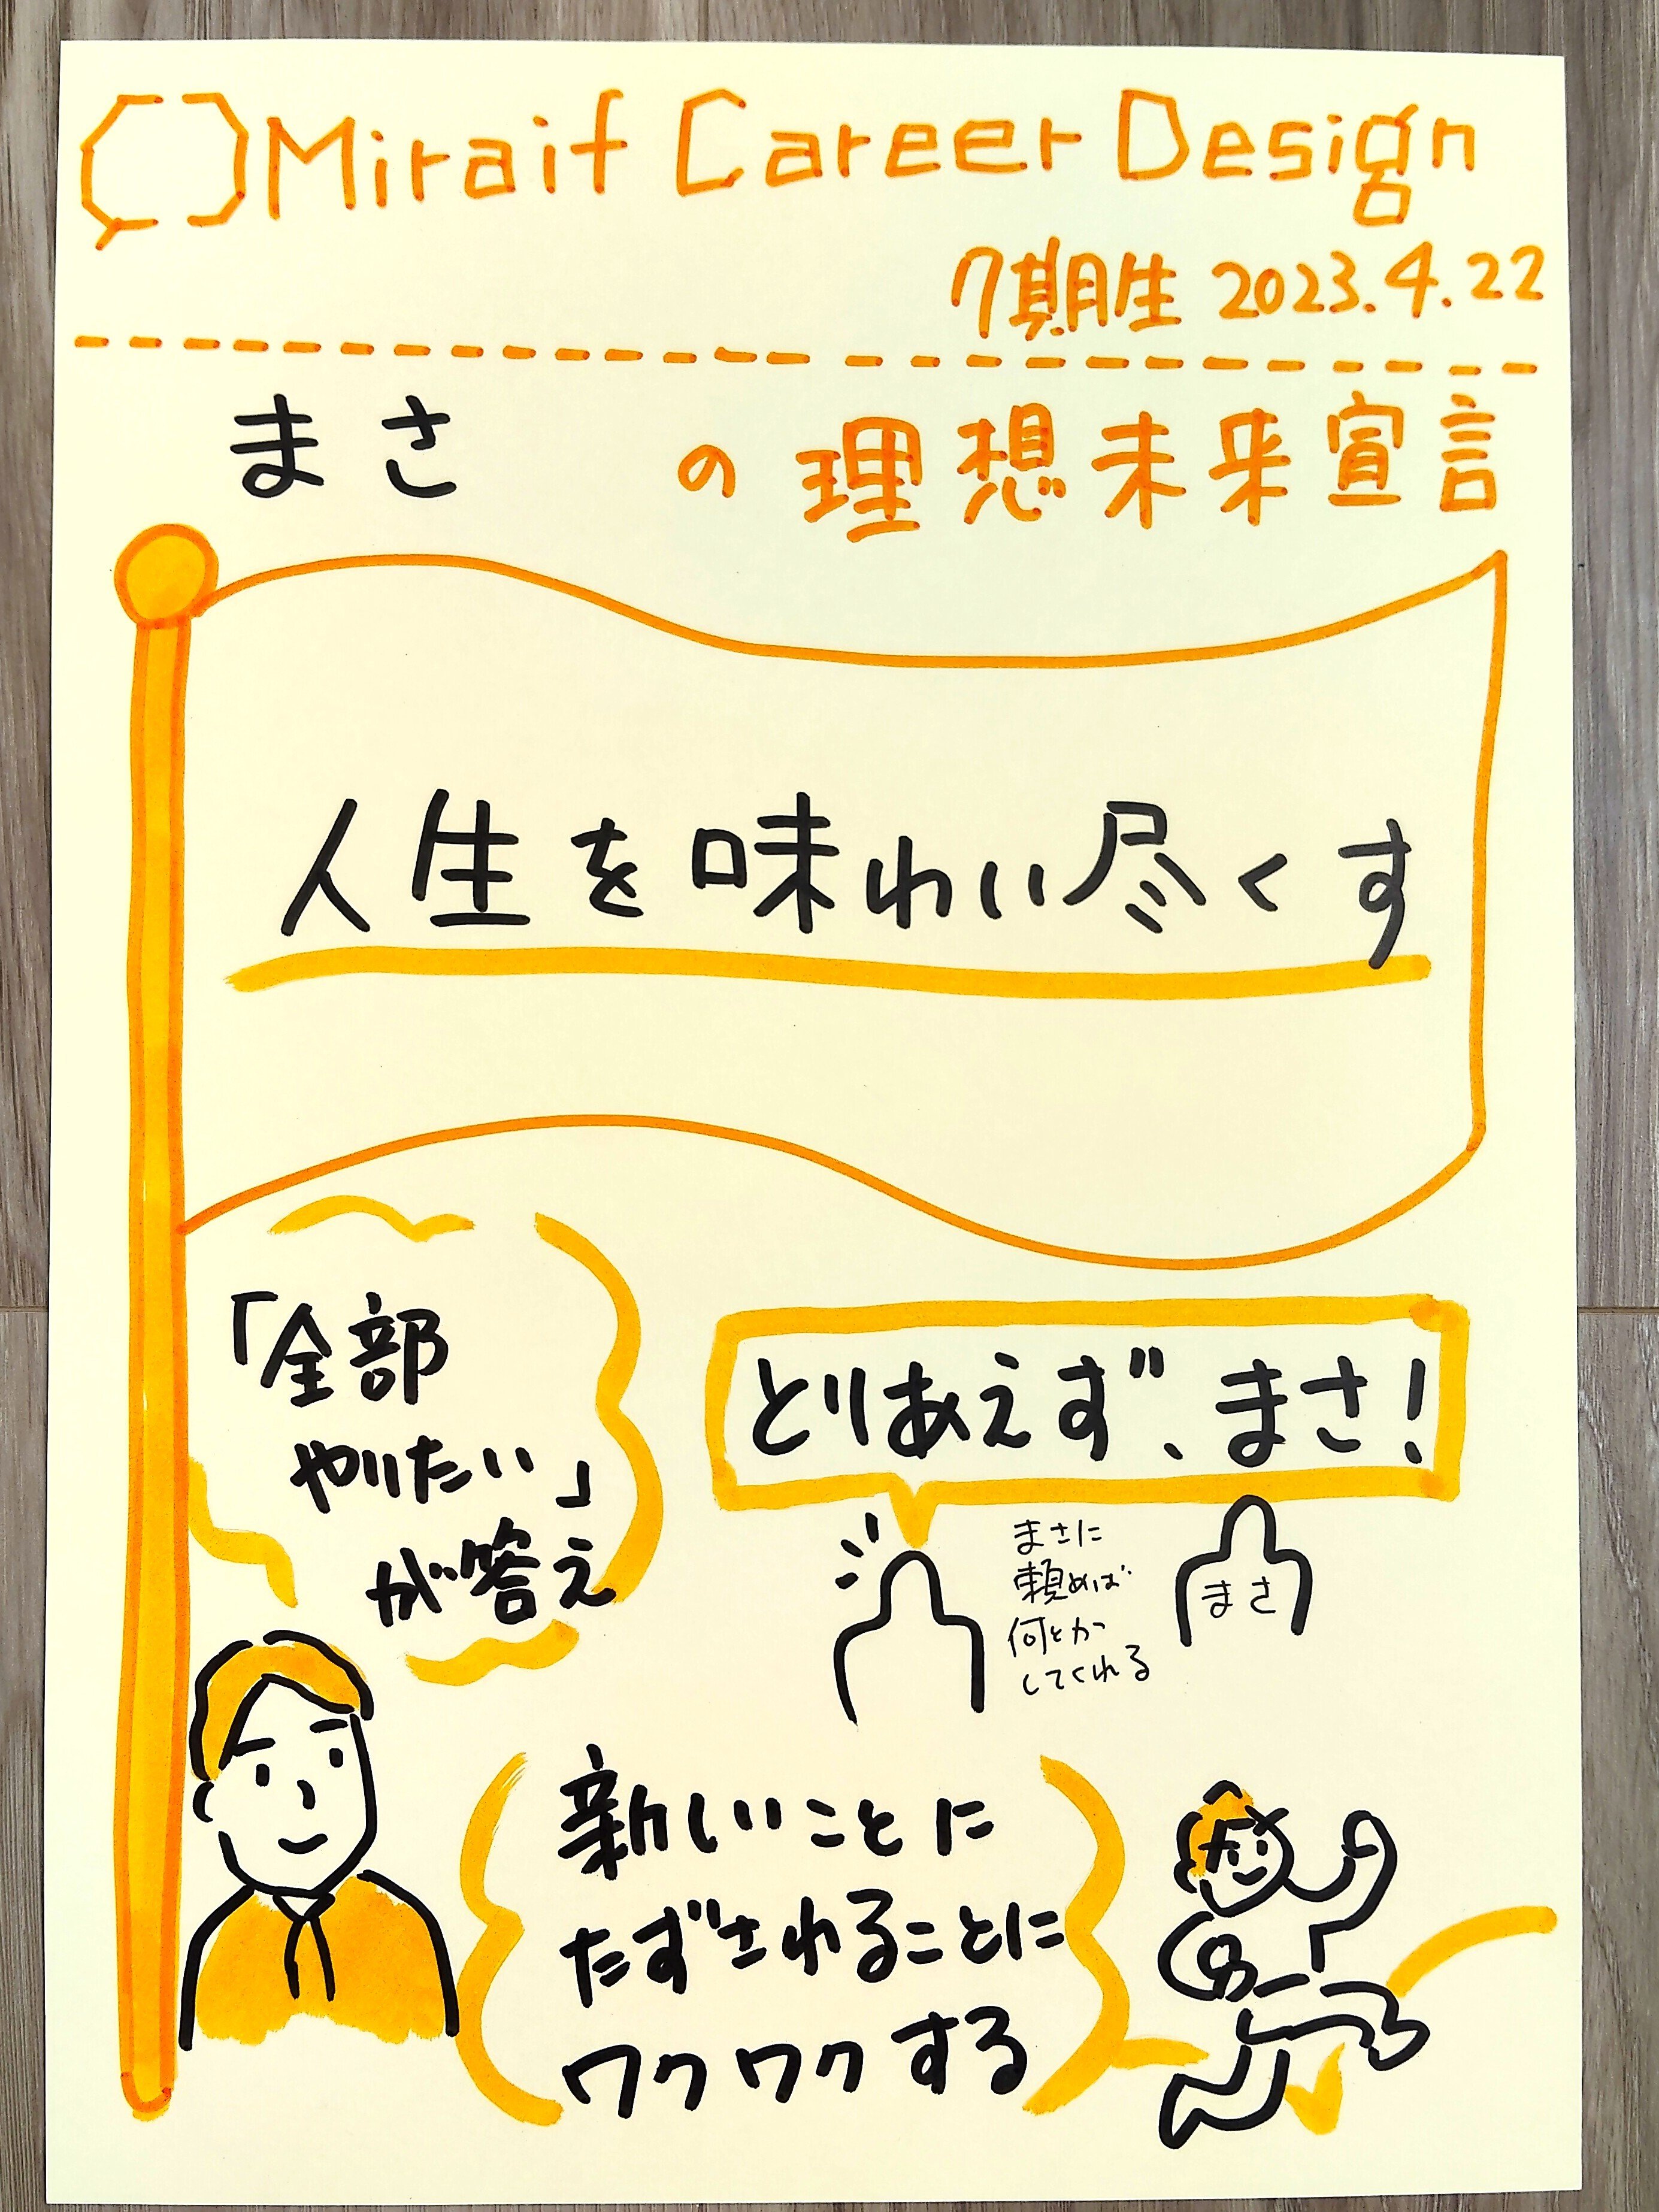 Miraif Career Design
7期生 2023.4.22
まさ の理想未来宣言
人生を味わい尽くす
「全部
やりたい」
が答え
とりあえず、まさ!
まさに
頼めば
何とか
してくれる
まさ
新しいことに
たずされることに
ワクワクする